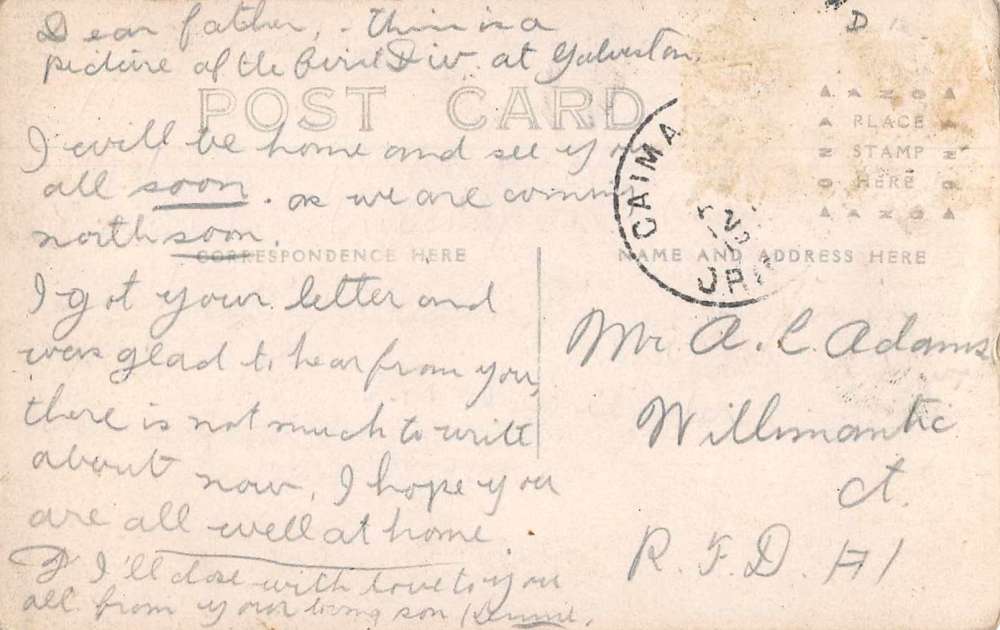 Dear father, - this is a
picture of the first Div. at Galveston.
POST CARD
I will be home and see you
all soon. as we are coming
north soon.
CORRESPONDENCE HERE
I got your letter and
was glad to hear from you,
there is not much to write
about now, I hope you
are all well at home.
I'll close with love to you
all from your loving son
D
AZO
PLACE
STAMP
HERE
AZO
CAIMA
NAME AND ADDRESS HERE
Mr. A. C. Adams
Willimantic
Ct.
R. F. D. #1